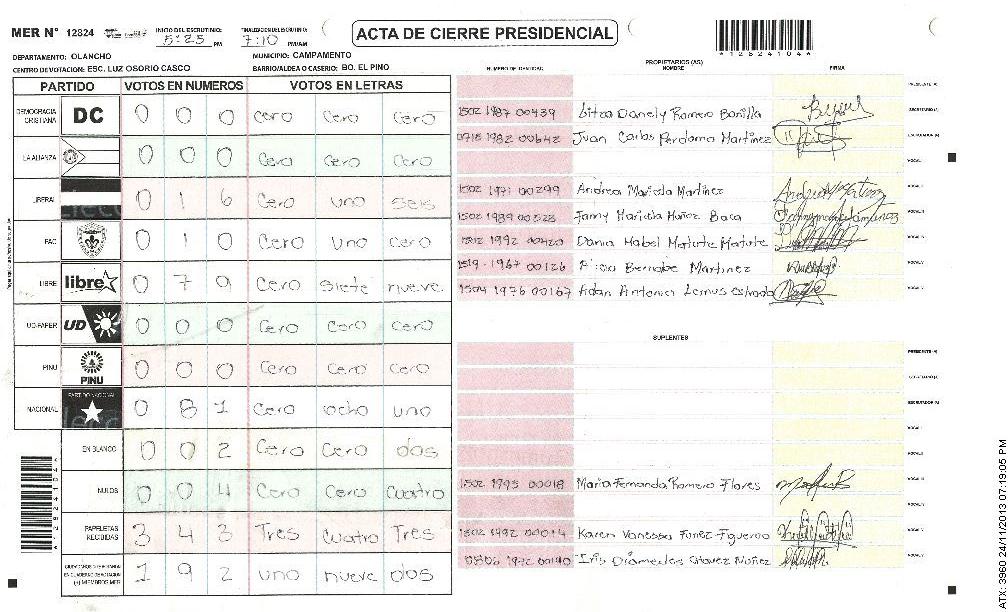 MER N° 12824
INICIO DEL ESCRUTINIO: 5:25 PM
FINALIZACION DEL ESCRUTINIO: 7:10 PM/AM
ACTA DE CIERRE PRESIDENCIAL
*12824104*
DEPARTAMENTO: OLANCHO
MUNICIPIO: CAMPAMENTO
CENTRO DE VOTACION: ESC. LUZ OSORIO CASCO
BARRIO/ALDEA O CASERIO: BO. EL PINO
PARTIDO VOTOS EN NUMEROS VOTOS EN LETRAS
DEMOCRACIA CRISTIANA DC 0 0 0 Cero Cero Cero
LA ALIANZA 0 0 0 Cero Cero Cero
LIBERAL 0 1 6 Cero uno seis
PAC 0 1 0 Cero uno cero
LIBRE libre 0 7 9 Cero siete nueve
UD-FAPER UD 0 0 0 Cero Cero Cero
PINU PINU 0 0 0 Cero Cero Cero
NACIONAL PARTIDO NACIONAL 0 8 1 Cero ocho uno
EN BLANCO 0 0 2 Cero Cero dos
NULOS 0 0 4 Cero Cero cuatro
PAPELETAS RECIBIDAS 3 4 3 Tres cuatro Tres
1 9 2 uno nueve dos
NUMERO DE IDENTIDAD
PROPIETARIOS (AS)
NOMBRE
FIRMA
PRESIDENTE (A)
SECRETARIO (A) 1502 1987 00439 Litza Danely Romero Bonilla
ESCRUTADOR (A) 0715 1982 00642 Juan Carlos Perdomo Martinez
VOCAL I
VOCAL II 1502 1971 00299 Andrea Maricela Martinez
VOCAL III 1502 1989 00528 Fanny Maricela Muñoz Baca
VOCAL IV 1502 1992 00420 Dania Mabel Matute Matute
VOCAL V 1519-1967 00126 Bernabe Martinez
VOCAL V 1504 1976 00167 Adan Antonio Lemus Estrada
SUPLENTES
PRESIDENTE (A)
SECRETARIO (A)
ESCRUTADOR (A)
VOCAL I
VOCAL II
VOCAL III 1502 1993 00018 Maria Fernanda Romero Flores
VOCAL IV 1502 1992 00014 Karen Vanessa Funez Figueroa
VOCAL V 1972 00190 Iris Diamedes Chavez Nuñez
ATX: 3960 24/11/2013 07:19:05 PM